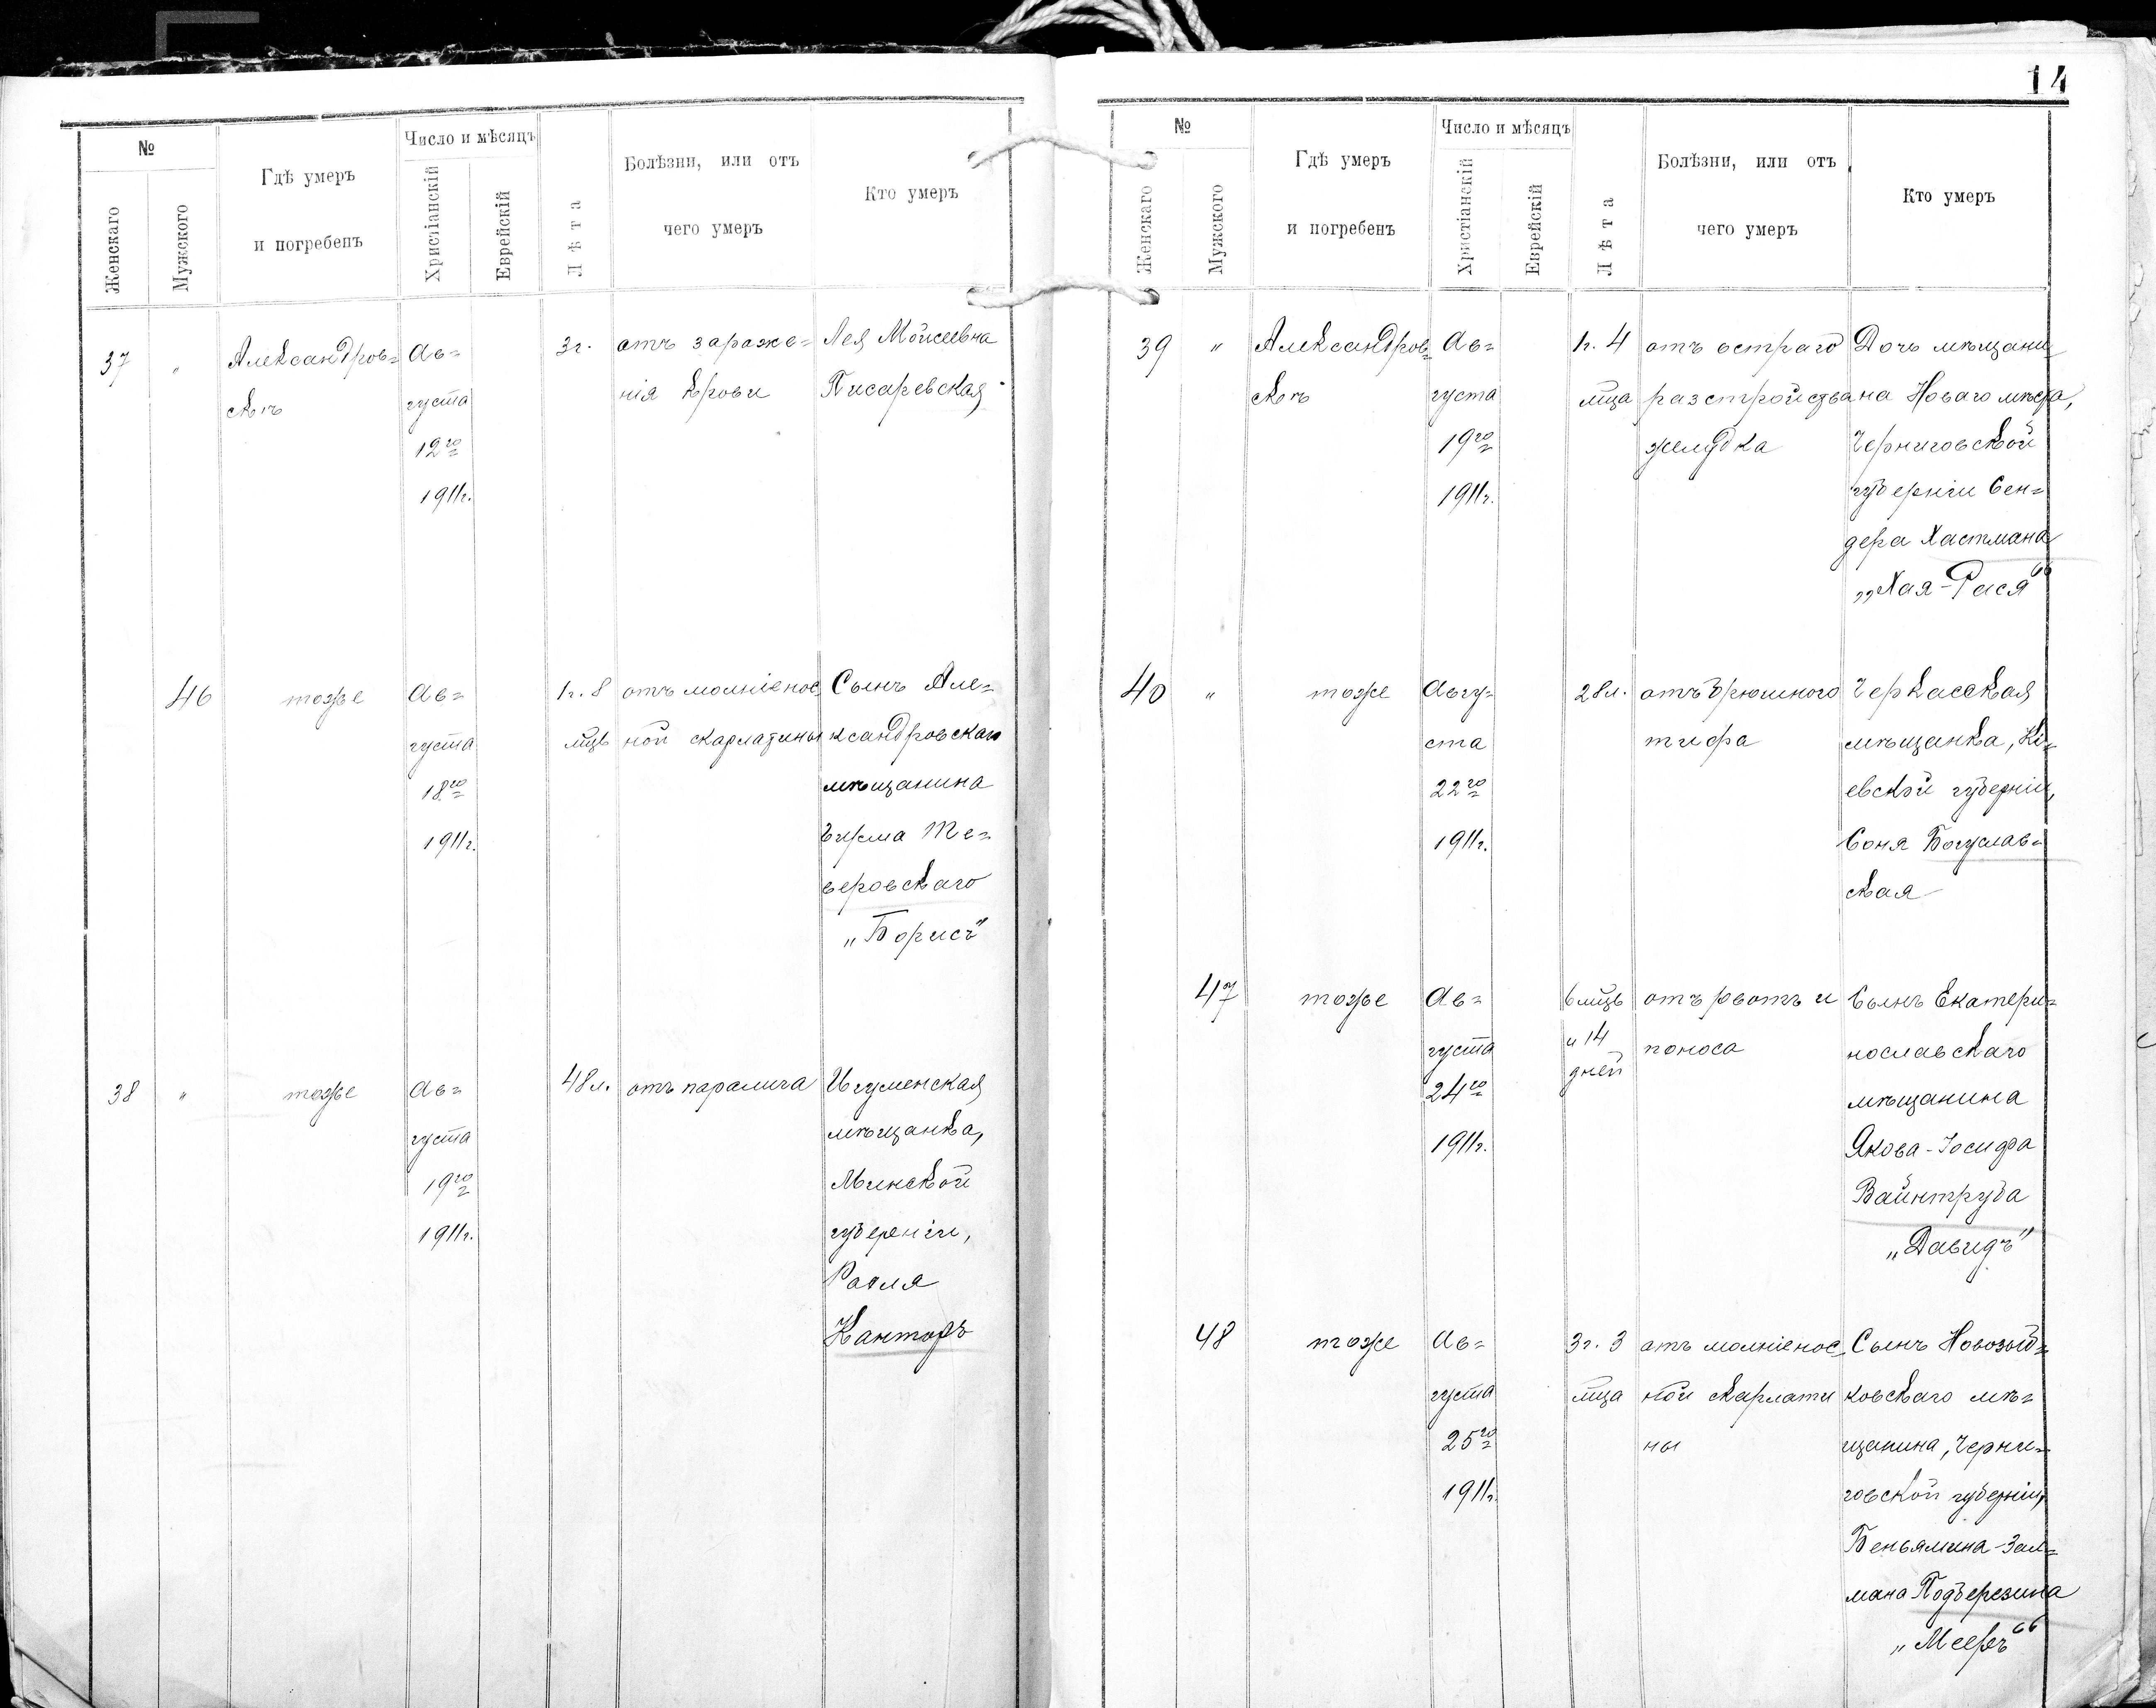 14
№
Женскаго
Мужского
Гдѣ умеръ
и погребенъ
Число и мѣсяцъ
Христіанскій
Еврейскій
Лѣта
Болѣзни, или отъ
чего умеръ
Кто умеръ
37 "
Александров=
скъ
Ав=
густа
12го
1911г.
3г.
отъ зараже=
нія крови
Лея Мойсеевна
Писаревская
46
тоже
Ав=
густа
18го
1911г.
1г. 8
мцв
отъ молніенос
ной скарлатины
Сынъ Але=
ксандровскаго
мѣщанина
веровскаго
„Борисъ"
38 "
тоже
Ав=
густа
19го
1911г.
48л.
отъ паралича
Игуменская
мѣщанка,
Минской
губереніи,
Канторъ
№
Женскаго
Мужского
Гдѣ умеръ
и погребенъ
Число и мѣсяцъ
Христіанскій
Еврейскій
Лѣта
Болѣзни, или отъ
чего умеръ
Кто умеръ
39 "
Александров=
скъ
Ав=
густа
19го
1911г.
1г. 4
мца
отъ остраго
разстройства
желудка
Дочь мѣщани=
на Новаго мѣста,
Черниговской
губерніи Сен=
дера Хастмана
„Хая-Рася"
40 "
тоже
Авгу=
ста
22го
1911г.
28л.
отъ брюшного
тифа
Черкасская
мѣщанка, Кі=
евской губерніи,
Соня Богуслав=
ская
47
тоже
Ав=
густа
24го
1911г.
6 мцв
и 14
дней
отъ рвотъ и
поноса
Сынъ Екатери=
нославскаго
мѣщанина
Якова-Іосифа
Вайнтруба
„Давидъ"
48
тоже
Ав=
густа
25го
1911г.
3г. 3
мца
отъ молніенос
ной скарлати
ны
Сынъ Новозыб=
ковскаго мѣ=
щанина, Черни=
говской губерніи,
Беньямина-Зал=
мана Подберезина
„Мееръ"